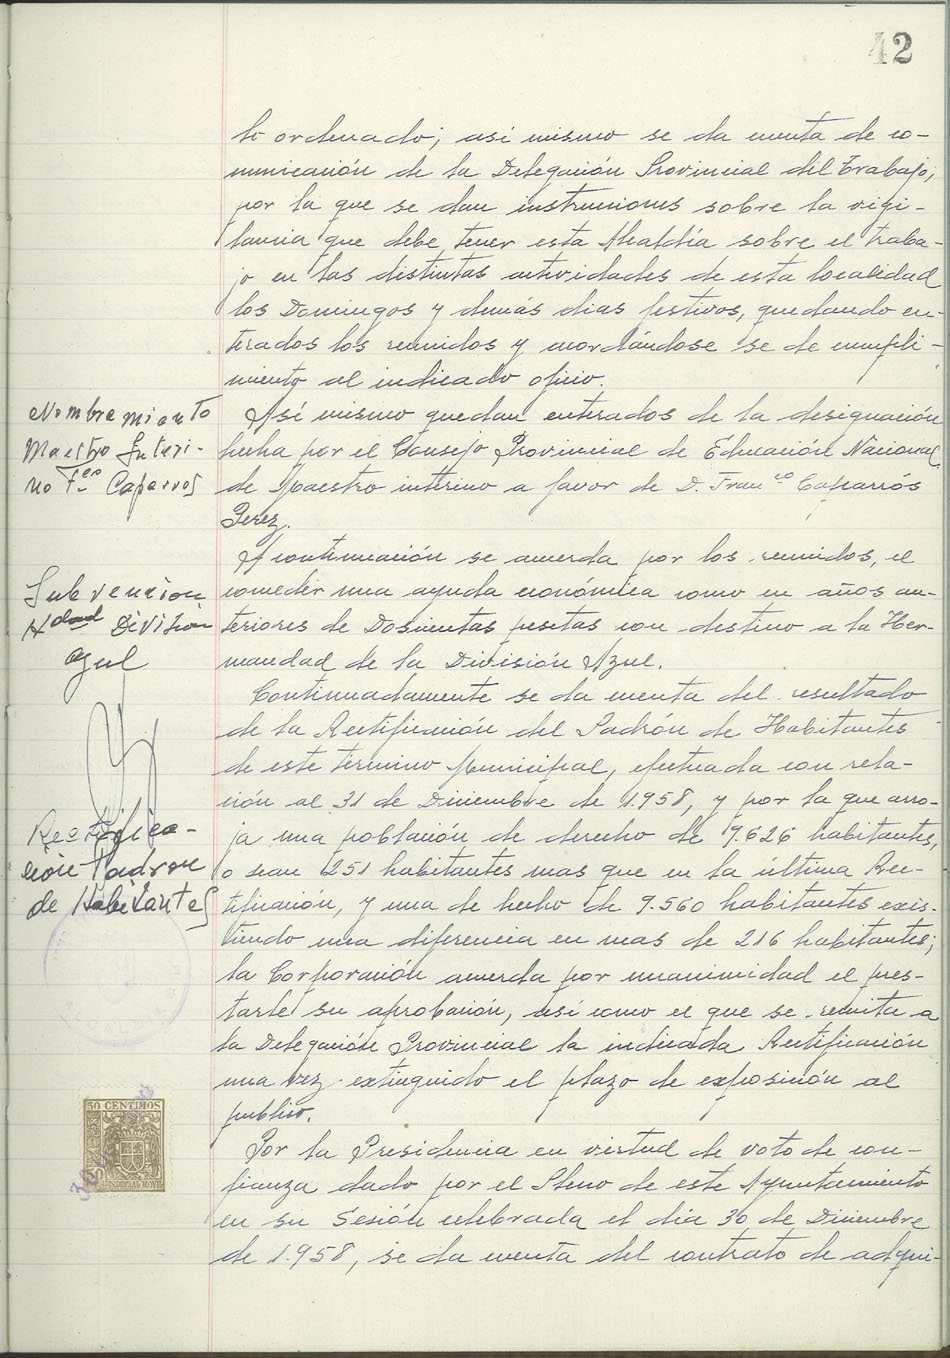 42
lo ordenado; así mismo se da cuenta de co-
municación de la Delegación Provincial del Trabajo,
por la que se dan instruciones sobre la vigi-
lancia que debe tener esta Alcaldía sobre el traba-
jo en las distintas actividades de esta localidad
los Domingos y demás dias festivos, quedando en-
terados los reunidos y acordándose se de cumpli-
miento al indicado oficio.
Nombramiento
Maestro Interi-
no Fco Caparros
Así mismo quedan enterados de la designación
hecha por el Consejo Provincial de Educación Nacional
de Maestro interino a favor de D. Franco Caparrós
Perez.
Subvencion
Hdad Division
Azul
A continuación se acuerda por los reunidos, el
conceder una ayuda económica como en años an-
teriores de Doscientas pesetas con destino a la Her-
mandad de la División Azul.
Rectifica-
ción Padron
de Habitantes
Continuadamente se da cuenta del resultado
de la Rectificación del Padrón de Habitantes
de este término Municipal, efectuada con rela-
ción al 31 de Diciembre de 1.958, y por la que arro-
ja una población de derecho de 9.626 habitantes,
o sean 251 habitantes mas que en la última Rec-
tificación, y una de hecho de 9.560 habitantes exis-
tiendo una diferencia en mas de 216 habitantes;
la Corporación acuerda por unanimidad el pres-
tarle su aprobación, así como el que se remita a
la Delegación Provincial la indicada Rectificación
una vez extinguido el plazo de exposición al
publico.
50 CENTIMOS
ESPECIAL MOVIL
Por la Presidencia en virtud de voto de con-
fianza dado por el Pleno de este Ayuntamiento
en su Sesión celebrada el día 30 de Diciembre
de 1.958, se da cuenta del contrato de adqui-